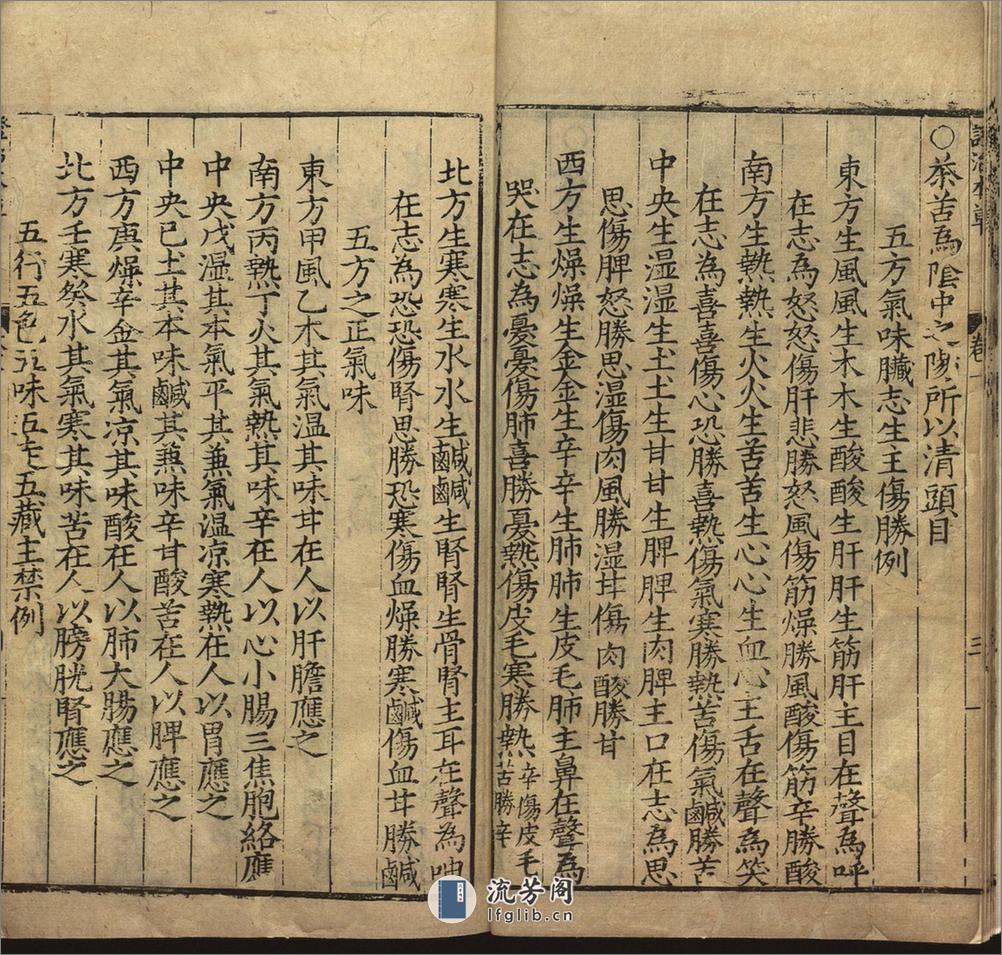 ○茶苦為陰中之陽所以清頭目
五方氣味臟志生主傷勝例
東方生風風生木木生酸酸生肝肝生筋肝主目在聲為呼
在志為怒怒傷肝悲勝怒風傷筋燥勝風酸傷筋辛勝酸
南方生熱熱生火火生苦苦生心心生血心主舌在聲為笑
在志為喜喜傷心恐勝喜熱傷氣寒勝熱苦傷氣鹹勝苦
中央生湿湿生土土生甘甘生脾脾生肉脾主口在志為思
思傷脾怒勝思湿傷肉風勝湿甘傷肉酸勝甘
西方生燥燥生金金生辛辛生肺肺生皮毛肺主鼻在聲為
哭在志為憂憂傷肺喜勝憂熱傷皮毛寒勝熱辛傷皮毛苦勝辛
北方生寒寒生水水生鹹鹹生腎腎生骨腎主耳在聲為呻
在志為恐恐傷腎思勝恐寒傷血燥勝寒鹹傷血甘勝鹹
五方之正氣味
東方甲風乙木其氣温其味甘在人以肝膽應之
南方丙熱丁火其氣熱其味辛在人以心小腸三焦胞絡應
中央戊湿其本氣平其兼氣温凉寒熱在人以胃應之
中央已土其本味鹹其兼味辛甘酸苦在人以脾應之
西方庚燥辛金其氣凉其味酸在人以肺大腸應之
北方壬寒癸水其氣寒其味苦在人以膀胱腎應之
五行五色五味五走五藏主禁例
卷一
三
流芳阁
lfglib.cn